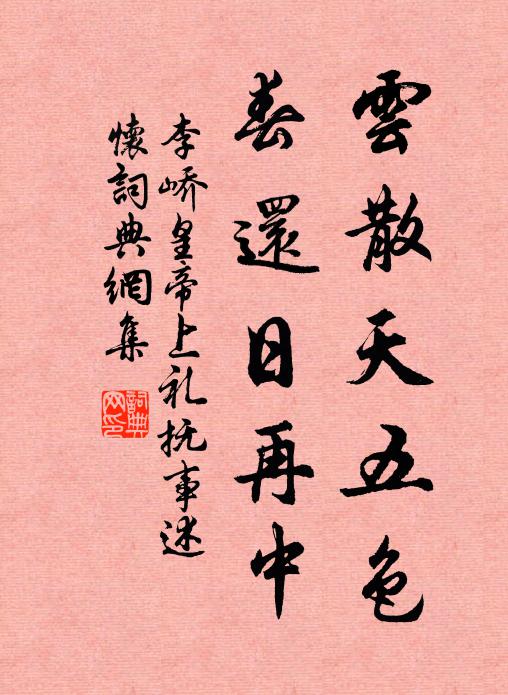 雲散天五色
春還日再中
李嶠皇帝上礼抚事述
懷詞典網集
詞典网印